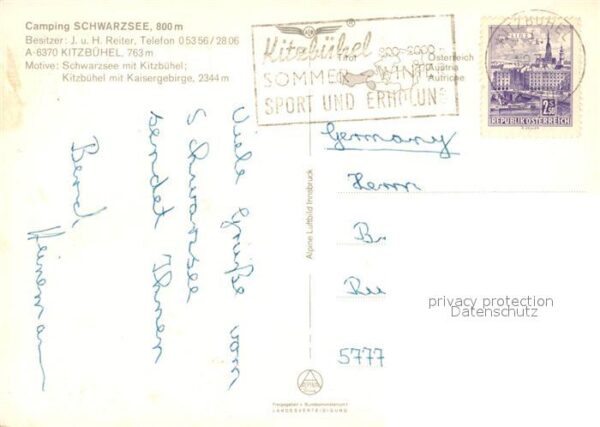 Camping SCHWARZSEE, 800 m
Besitzer: J. u. H. Reiter, Telefon 0 53 56 / 28 06
A-6370 KITZBÜHEL, 763 m
Motive: Schwarzsee mit Kitzbühel;
Kitzbühel mit Kaisergebirge, 2344 m
Kitzbühel
Tirol
800-2000 m
Österreich
Austria
Autriche
SOMMER WINT
SPORT UND ERHOLUNG
LINZ
2.50
REPUBLIK ÖSTERREICH
Viele Grüße vom
Schwarzsee
sendet Ihnen
Bernd
Germany
Herrn
B.
5777
Alpine Luftbild Innsbruck
privacy protection
Datenschutz
ALPINE
Freigegeben v. Bundesministerium f.
LANDESVERTEIDIGUNG